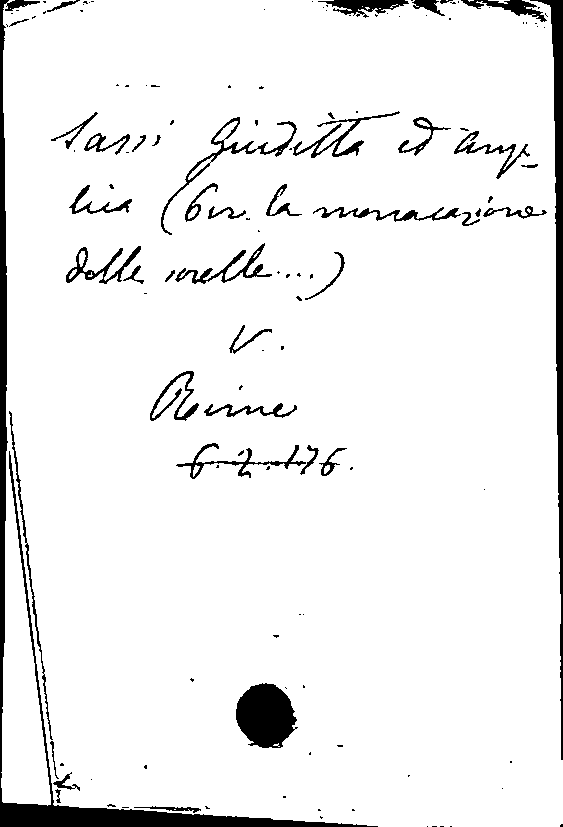 Sassi Giuditta ed Ange-
lica (Per la monacazione
delle sorelle...)
V.
Rime
6.2.176.